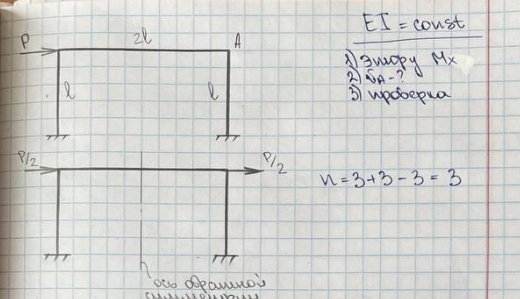 EI = const
P
2l
A
l
l
1) Эпюру Mx
2) υA - ?
3) проверка
P/2
P/2
n = 3+3-3 = 3
ось обратной
симметрии